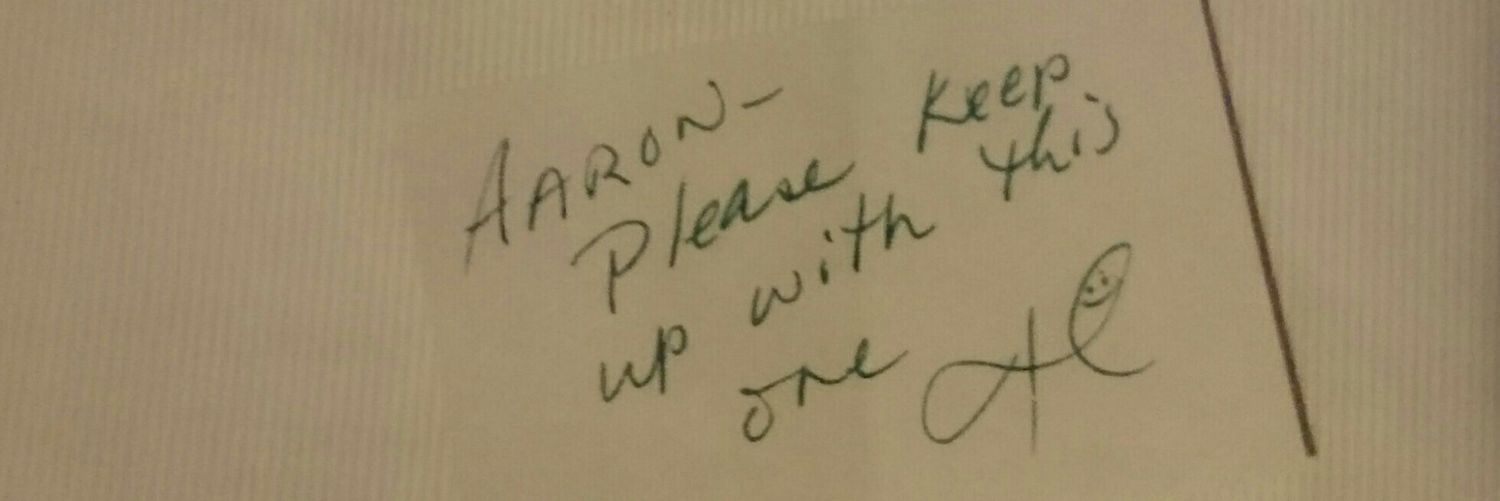 AARON-
Please keep
up with this
one